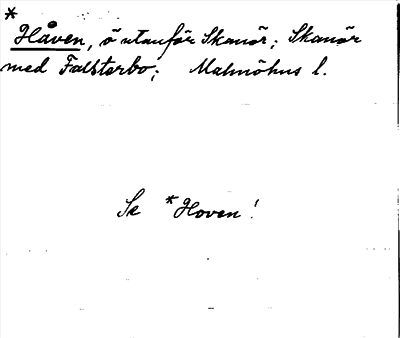 *
Håven, ö utanför Skanör; Skanör
med Falsterbo; Malmöhus l.
Se *Hoven!